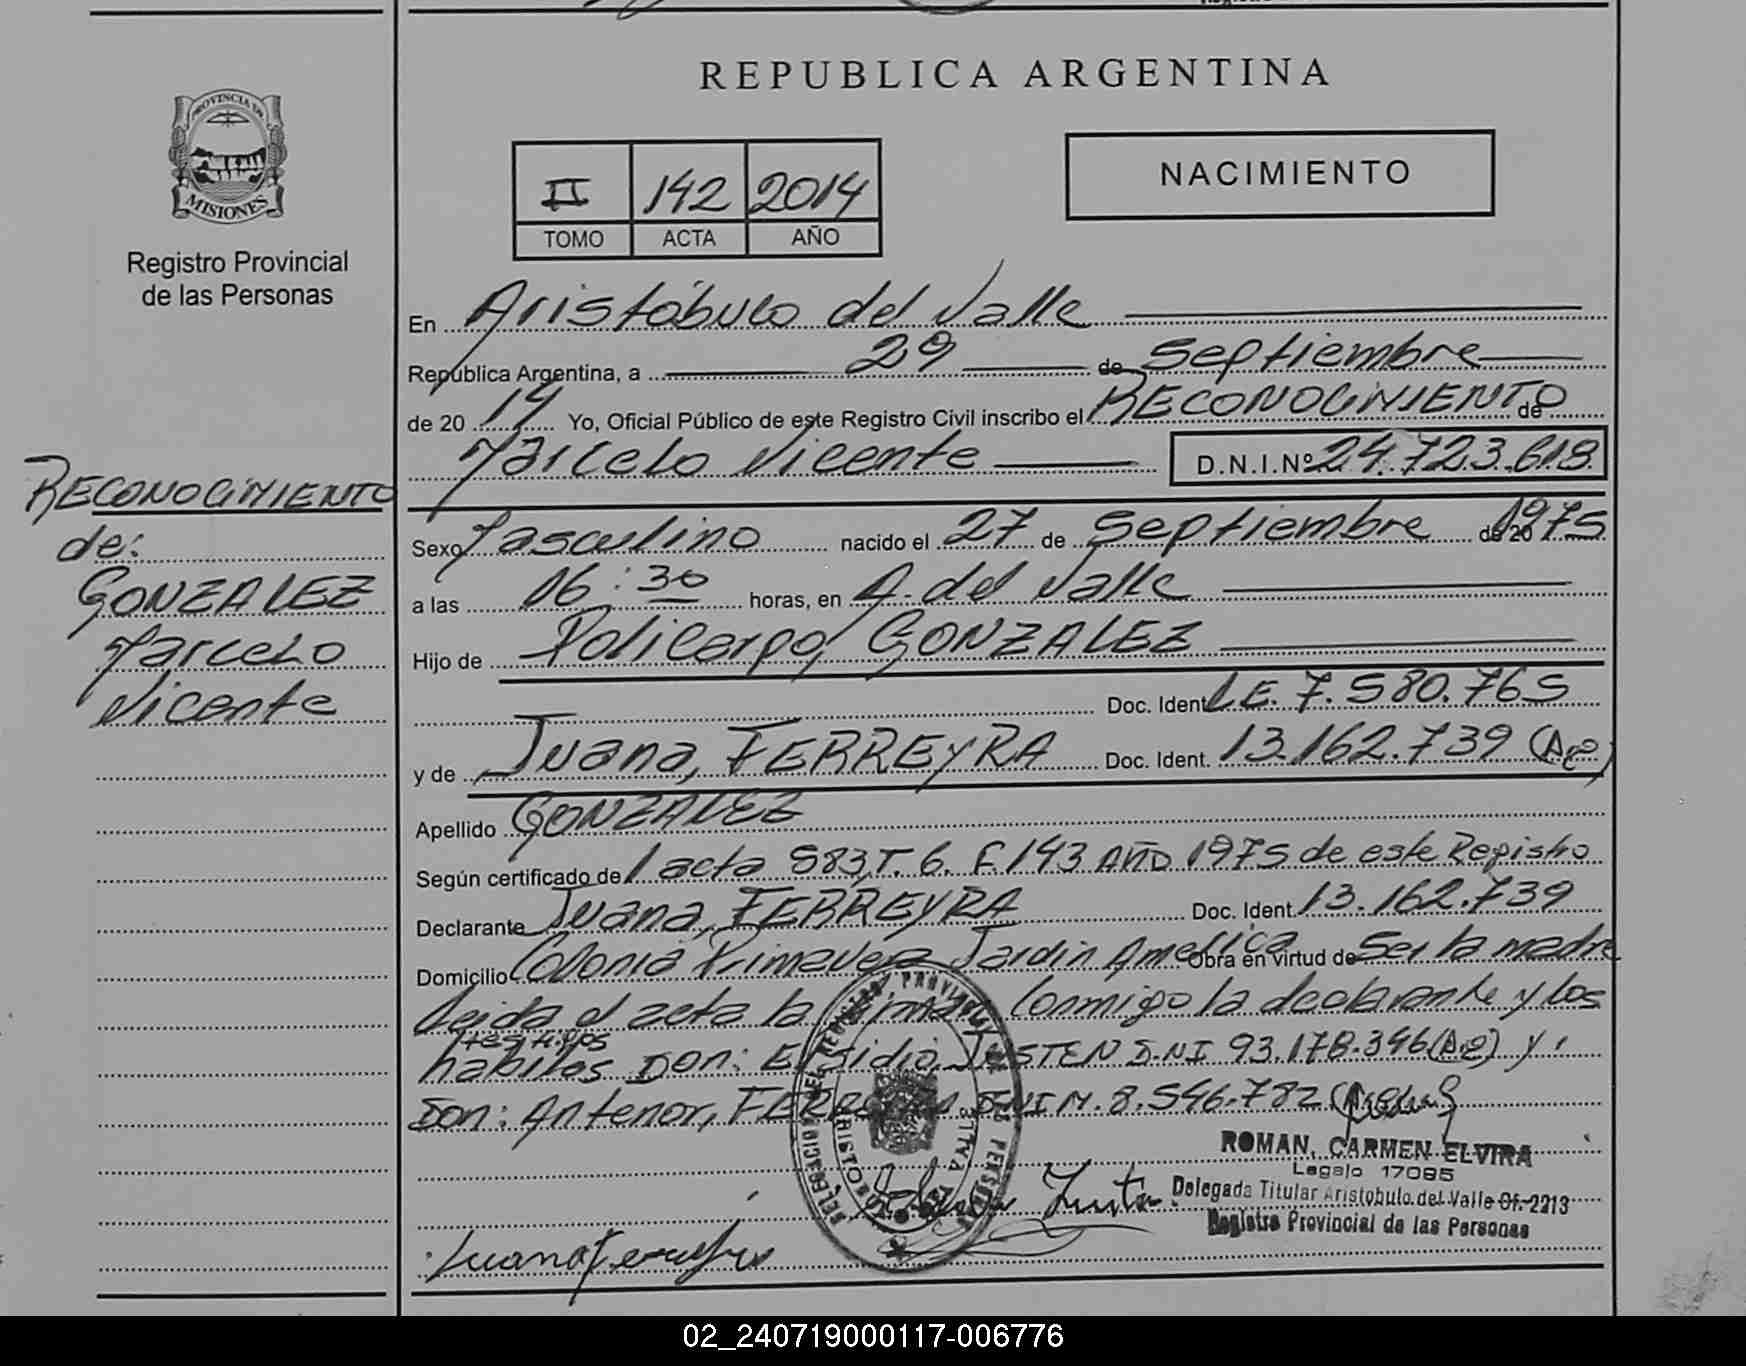 REPUBLICA ARGENTINA
PROVINCIA DE
MISIONES
Registro Provincial
de las Personas
II 142 2014
TOMO ACTA AÑO
NACIMIENTO
En Aristóbulo del Valle
República Argentina, a 29 de Septiembre
de 20 14 Yo, Oficial Público de este Registro Civil inscribo el RECONOCIMIENTO de
Marcelo Vicente D.N.I.Nº 24.723.618
RECONOCIMIENTO
de:
GONZALEZ
Marcelo
Vicente
Sexo Masculino nacido el 27 de Septiembre de 1975
a las 16:30 horas, en A. del Valle
Hijo de Policarpo, GONZALEZ
Doc. Ident. L.E. 7.580.765
y de Juana, FERREYRA Doc. Ident. 13.162.739 (Arg)
Apellido GONZALEZ
Según certificado de acta 583, T. 6. F. 143 AÑO 1975 de este Registro
Declarante Juana, FERREYRA Doc. Ident. 13.162.739
Domicilio Colonia Primavera Jardín América Obra en virtud de Ser la madre
Leida el acta la firman conmigo la declarante y los
testigos
habiles Don: JUSTEN D.N.I 93.178.346 y
Don: Antenor, D.N.I M. 8.546.782
ROMAN, CARMEN ELVIRA
Legajo 17085
Delegada Titular Aristobulo del Valle Of. 2213
Registro Provincial de las Personas
Juana Ferreyra
02_240719000117-006776